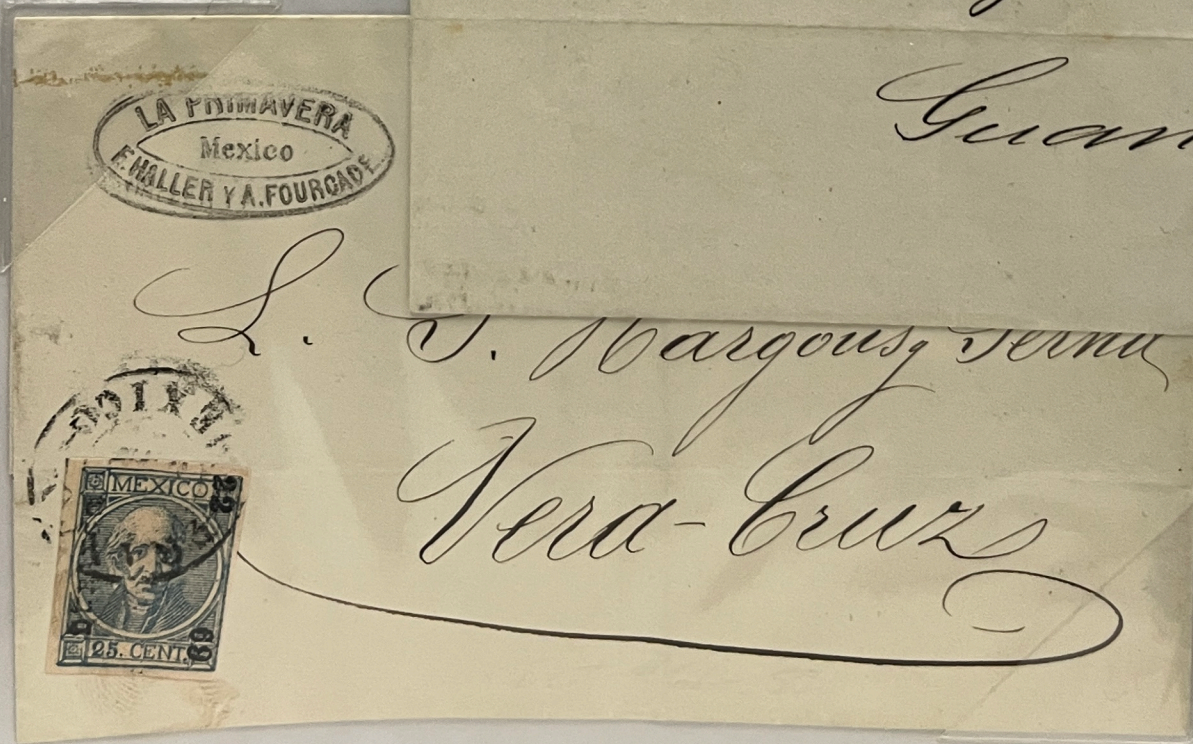 LA PRIMAVERA
Mexico
F. HALLER Y A. FOURCADE
Guan
L. S. Hargous y
Vera-Cruz
MEXICO
MEXICO
22
69
25. CENT.